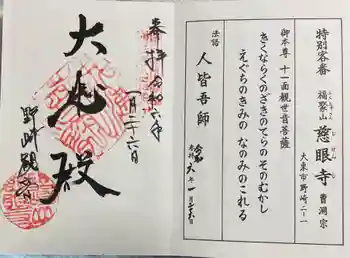 特別客番
福聚山 慈眼寺 曹洞宗
ふくじゅさん じげんじ
大東市野崎二-一
御本尊 十一面観世音菩薩
きくならくのざきのてらの そのむかし
えぐちのきみの なのみのこれる
法語
人皆吾師
奉拝 令和六年
一月二十六日
大悲殿
野崎観音